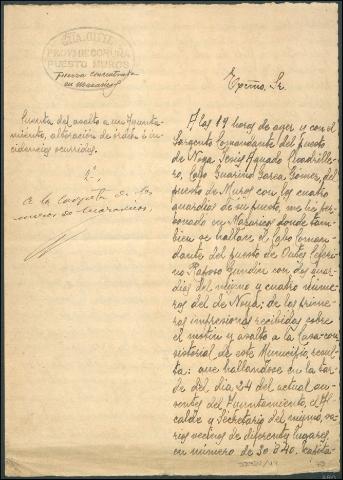 PROV. DE CORUÑA
PUESTO MUROS
fuerza concentrada
en mazaricos
Excmo. Sr.
Cuenta del asalto a un Ayunta-
miento, alteración de orden é in-
cidencias ocurridas.
A la Carpeta de los
de Mazaricos.
A las 19 horas de ayer y con el
Sargento Comandante del puesto
de Noya Jesús Aguado Cuadrille-
ro, Cabo García Gómez, del
puesto de Muros con los cuatro
guardias de su puesto, me he per-
sonado en Mazaricos donde tam-
bien se hallaba el Cabo Coman-
dante del puesto de Outes Ceferi-
no Raposo Gundín con dos guar-
dias del mismo y cuatro núme-
ros del de Noya; de las prime-
ras impresiones recibidas sobre
el motín y asalto a la Casa-con-
sistorial de este Municipio, resul-
ta: que hallandose en la tar-
de del dia 24 del actual au-
sentes del Ayuntamiento, el Al-
calde y Secretario del mismo, va-
rios vecinos de diferentes lugares,
en número de 30 ó 40, capita-